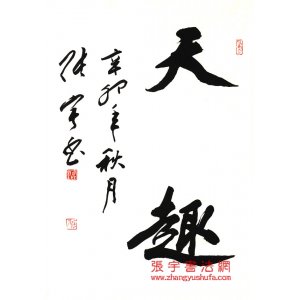 天趣
辛卯年秋月
张宇书
張宇書法網
www.zhangyushufa.com